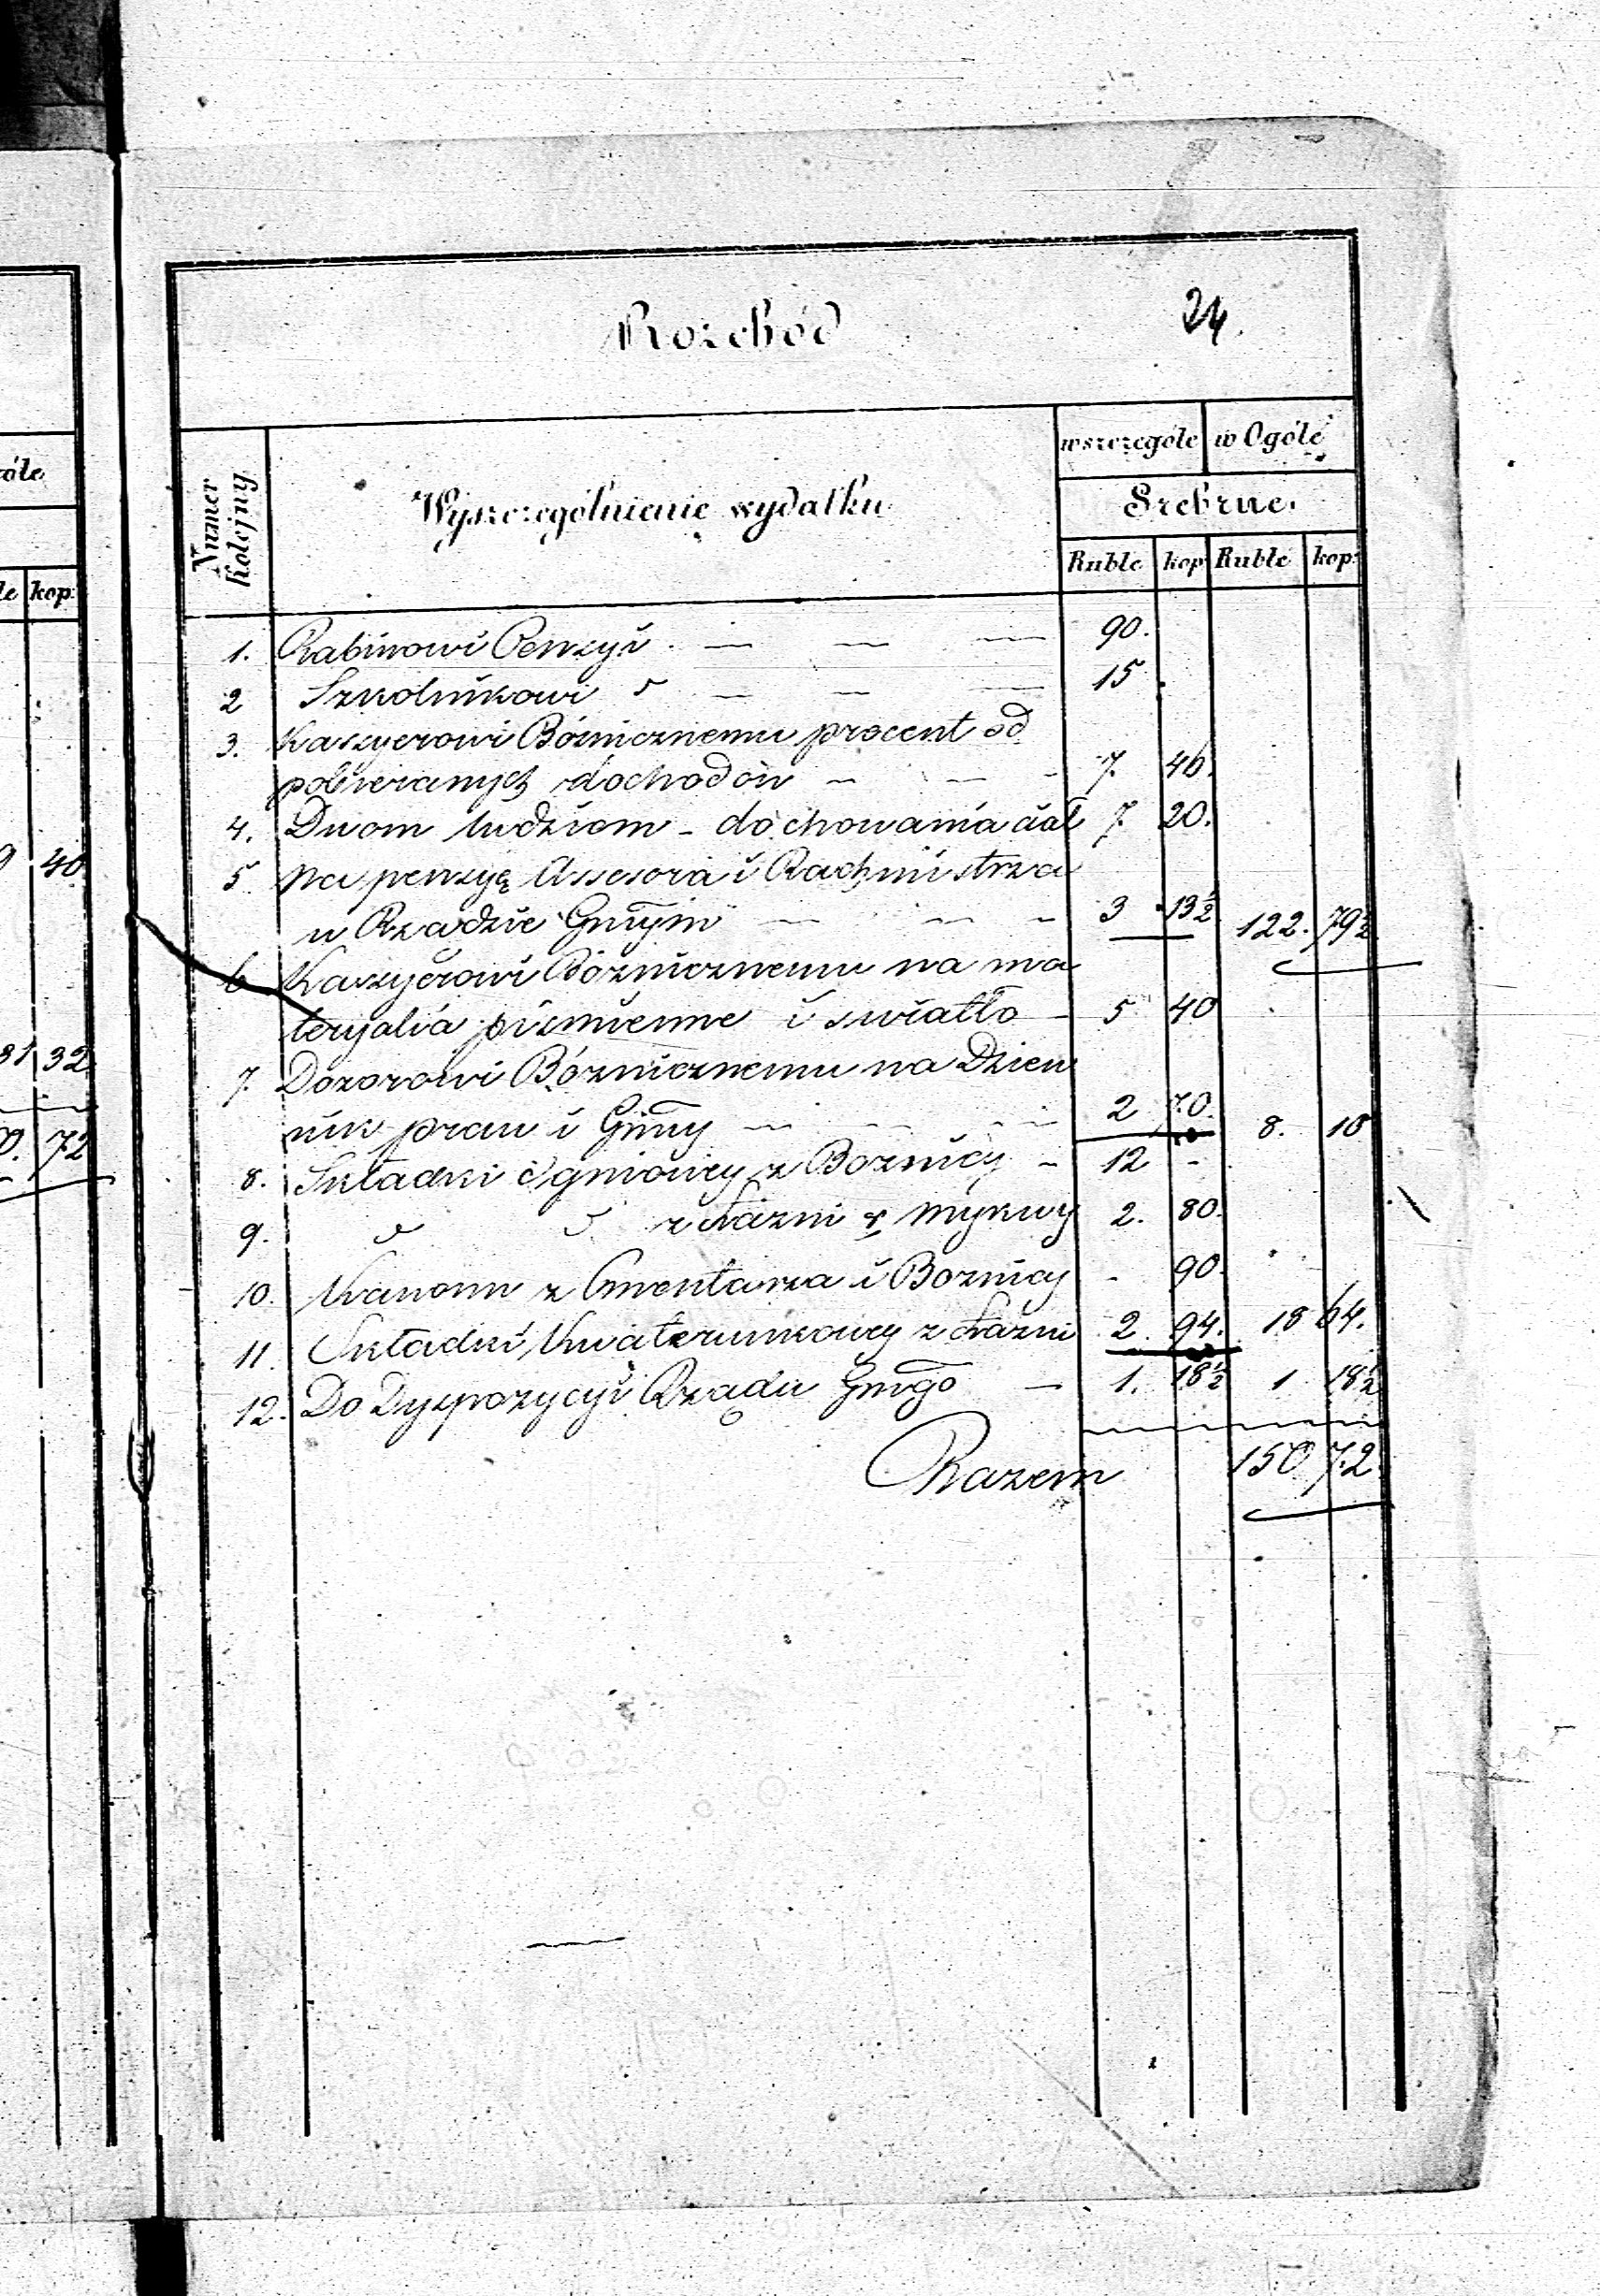 Rozchód 24.
wszczególe w Ogóle
Numer Kolejny
Wyszczególnienie wydatku
Srebrne.
Ruble kop Ruble kop:
óle
le kop:
1. Rabinowi Pensyi - — — 90.
2 Szkolnikowi " — — — 15 .
3. Kassyerowi Bóźnicznemu procent od
pobieranych dochodów — — - 7. 46.
4. Dwom ludziom - do chowania ciał 7. 20.
40
5. Na pensyą Assesora i Rachmistrza
w Rządzie Gmyim — — - 3 13½ 122. 79½
6 Kassyerowi Bóźnicznemu na ma
teryalia piśmienne i swiatło - 5 40
31 32
7. Dozorowi Bóźnicznemu na Dzien
nik praw i Gminy — - — 2 70. 8. 10
0. 72
8. Składki Ogniowey z Boznicy - 12 -
9. " " z Łazni i Mykwy 2. 80.
10. Kanonu z Cmentarza i Boznicy - 90.
11. Składki Kwaterunkowey z Łazni 2. 94. 18 64.
12. Do Dyspozycyi Rządu Gmgo — 1. 18½ 1 18½
Razem 150 72